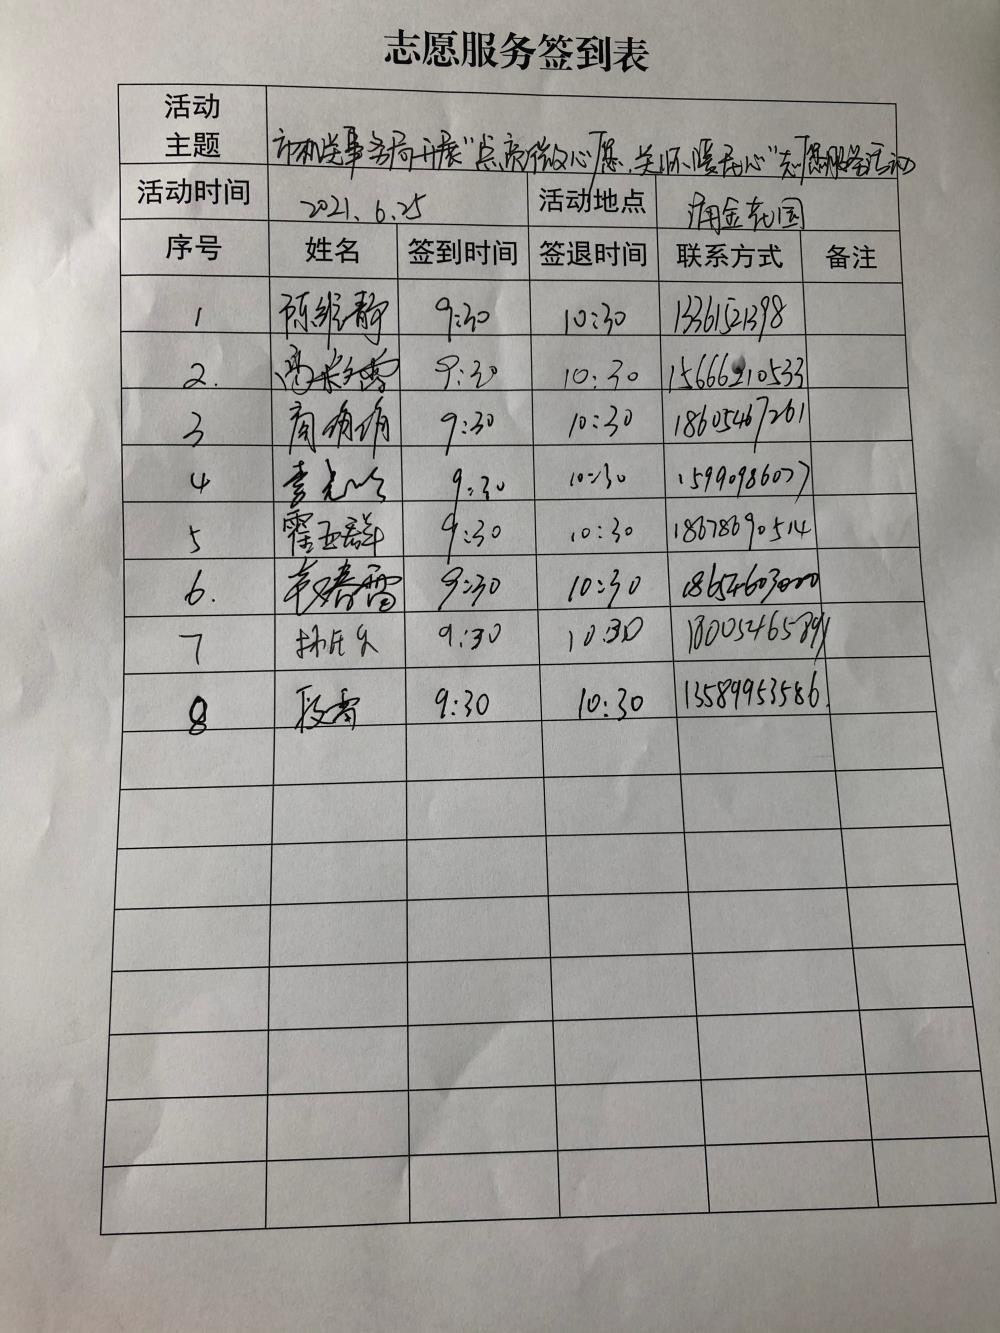 志愿服务签到表
活动主题 市机关事务局开展"点亮微心愿、关怀暖民心"志愿服务活动
活动时间 2021.6.25 活动地点 润金花园
序号 姓名 签到时间 签退时间 联系方式 备注
1 陈维静 9:30 10:30 13361521398
2. 9:30 10:30 15666210533
3 周娟娟 9:30 10:30 18605467261
4 9:30 10:30 15990986077
5 霍玉群 9:30 10:30 18678690514
6. 韩春雷 9:30 10:30 18654603000
7 9:30 10:30 18005465891
8 段雷 9:30 10:30 13589953586